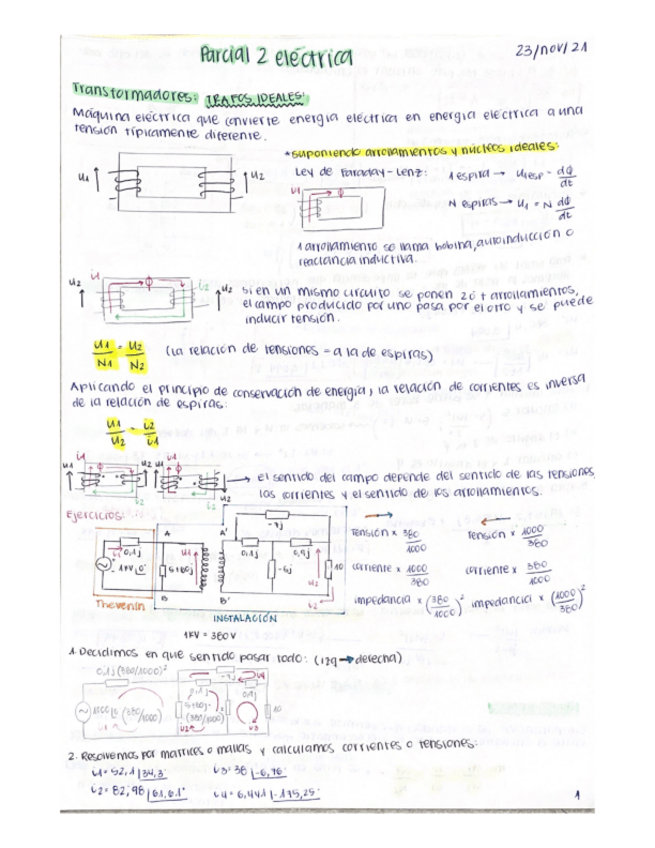 Parcial 2 eléctrica
23/nov/21
Transformadores: TRAFOS IDEALES:
Máquina eléctrica que convierte energía eléctrica en energía eléctrica a una
tensión típicamente diferente.
*suponiendo arrollamientos y núcleos ideales:
Ley de Faraday-Lenz: 1 espira → u1esp = dϕ/dt
N espiras → u1 = N dϕ/dt
u1 u2
u1
1 arrollamiento se llama bobina, autoinducción o
reactancia inductiva.
u2 i1 ϕ i2 u2
si en un mismo circuito se ponen 2 o + arrollamientos,
el campo producido por uno pasa por el otro y se puede
inducir tensión.
u1/N1 = u2/N2 (la relación de tensiones = a la de espiras)
Aplicando el principio de conservación de energía, la relación de corrientes es inversa
de la relación de espiras:
u1/u2 = i2/i1
i1 i1
u1 ϕ u2 u1 ϕ
i2 i2 u2
→ el sentido del campo depende del sentido de las tensiones,
las corrientes y el sentido de los arrollamientos.
Ejercicios:
A A'
-9j
0,1j u1 0,1j 0,9j
i1
1KV∠0° 5+60j -6j u2 10
i2
B B'
Thevenin
INSTALACIÓN
1KV = 380V
→ ←
Tensión x 380/1000 Tensión x 1000/380
corriente x 1000/380 corriente x 380/1000
impedancia x (380/1000)² impedancia x (1000/380)²
1. Decidimos en que sentido pasar todo: (izq → derecha)
0,1j (380/1000)²
0,1j 0,9j
(380/1000) (380/1000)² 10
i1 i2 i3
2. Resolvemos por matrices o mallas y calculamos corrientes o tensiones:
i1 = 52,1∠34,3° i3 = 38∠-6,76
i2 = 82,98∠61,61° i4 = 6,441∠-175,25°
1